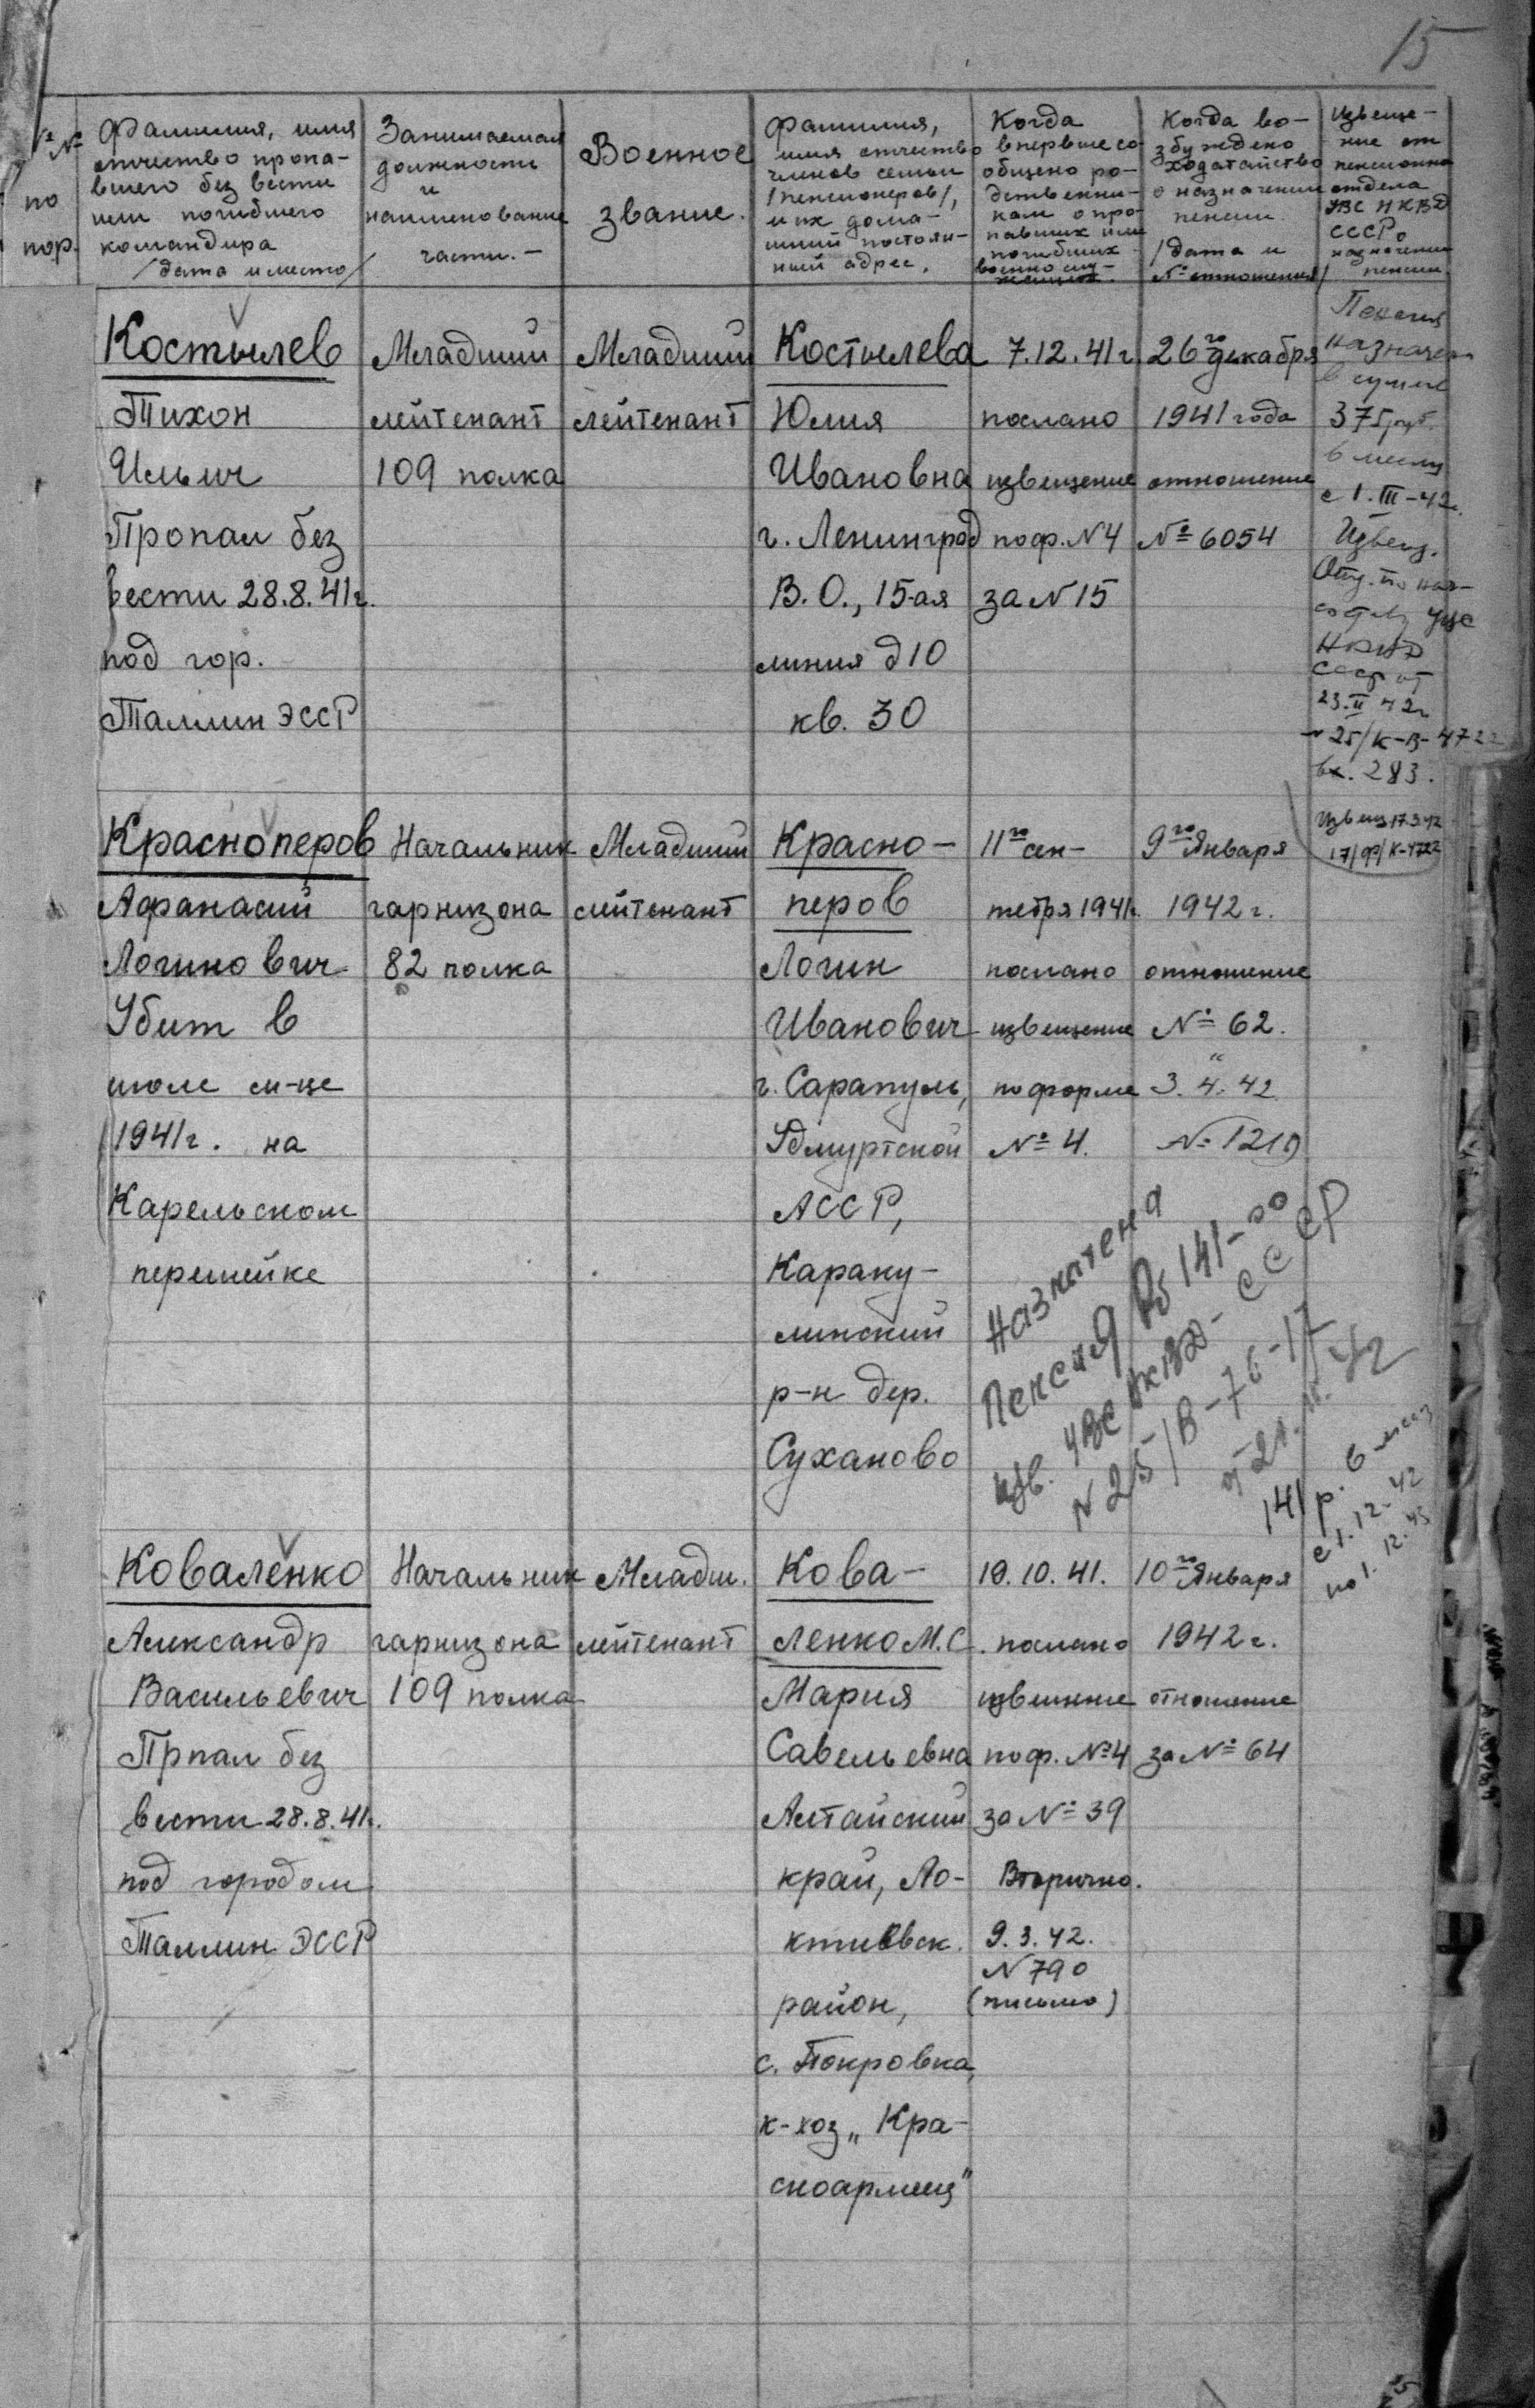 15
№№
по
пор.
Фамилия, имя
отчество пропа-
вшего без вести
или погибшего
командира
/дата и место/
Занимаемая
должность
и
наименование
части.-
Военное
звание.
Фамилия,
имя отчество
членов семьи
/пенсионеров/,
и их дома-
шний постоян-
ный адрес.
Когда
впервые со-
общено ро-
дственни-
кам о про-
павших или
погибших
военнослу-
жащих.
Когда во-
збуждено
ходатайство
о назначении
пенсии
/дата и
№ отношения/
Извеще-
ние от
пенсионно
отдела
УВС НКВД
СССР о
назначении
пенсии
Костылев
Тихон
Ильич
Пропал без
вести 28.8.41г.
под гор.
Таллин ЭССР
Младший
лейтенант
109 полка
Младший
лейтенант
Костылева
Юлия
Ивановна
г. Ленинград
В.О., 15-ая
линия д10
кв. 30
7.12.41г
послано
извещение
по ф. N4
за N15
26го декабря
1941 года
отношение
№ 6054
Пенсия
назначен
в сумме
375 руб.
в месяц
с 1.III-42г.
Извещ.
Отд. по нач-
составу УВС
НКВД
СССР от
23.II 42г
N 25/К-В-4722
вх. 283.
Красноперов
Афанасий
Логинович
Убит в
июле м-це
1941г. на
Карельском
перешейке
Начальник
гарнизона
82 полка
Младший
лейтенант
Красно-
перов
Логин
Иванович
г. Сарапуль,
Удмуртской
АССР,
Караку-
линский
р-н дер.
Суханово
11го сен-
тебря 1941г.
послано
извещение
по форме
№ 4.
9го Января
1942г.
отношение
№ 62.
3. 4. 42
№ 1219
Извещ 17.3.42
17/ф/К-4722
Назначена
Пенсия Рб 141-00
изв. УВС НКВД-СССР
N 25/В-76-17
от 21. 11. 42
141 р. в месяц
с 1.12-42
по 1.12.43
Коваленко
Александр
Васильевич
Прпал без
вести 28.8.41г.
под городом
Таллин ЭССР
Начальник
гарнизона
109 полка
Младш.
лейтенант
Кова-
ленко М.С.
Мария
Савельевна
Алтайский
край, Ло-
ктивск.
район,
с. Покровка,
к-хоз „Кра-
сноармеец"
19.10.41.
послано
извещение
по ф. №4
за № 39
Вторично.
9.3.42.
N 790
(письмо)
10го Января
1942г.
отношение
за № 64